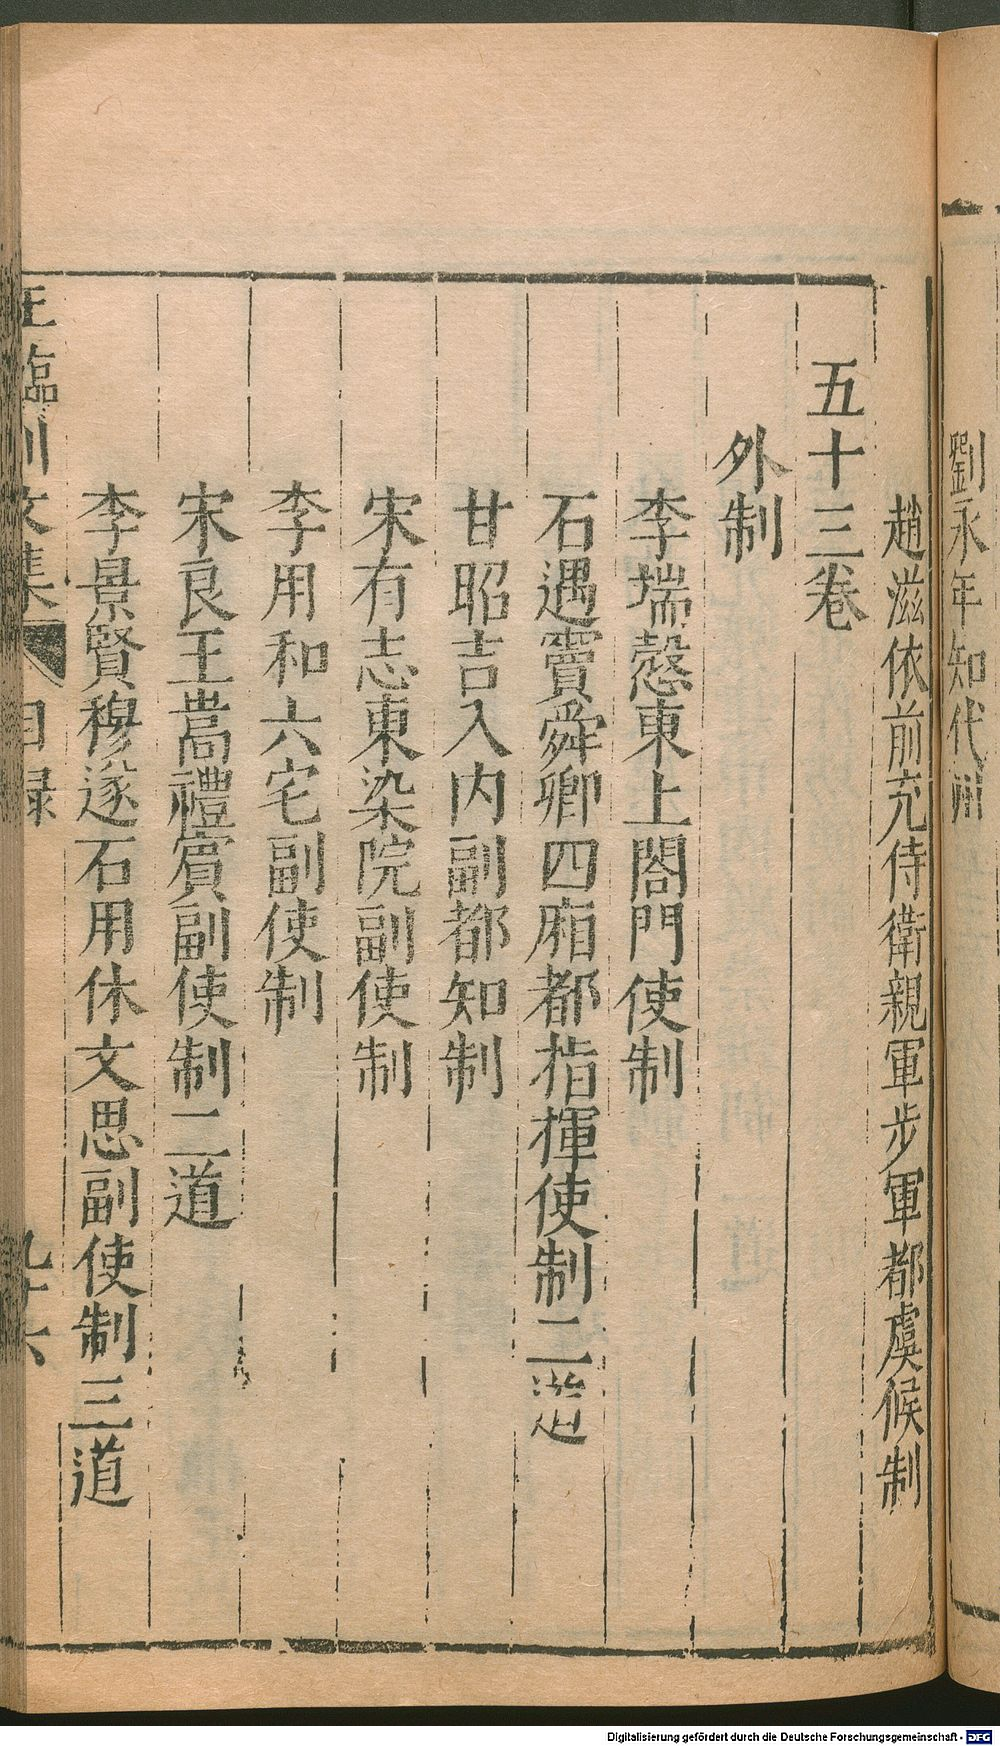 劉永年知代州
趙滋依前充侍衛親軍步軍都虞候制
五十三卷
外制
李端慤東上閤門使制
石遇竇舜卿四廂都指揮使制二道
甘昭吉入内副都知制
宋有志東染院副使制
李用和六宅副使制
宋良王嵩禮賓副使制二道
李景賢穆遂石用休文思副使制三道
王臨川文集 目録 九十六
Digitalisierung gefördert durch die Deutsche Forschungsgemeinschaft - DFG